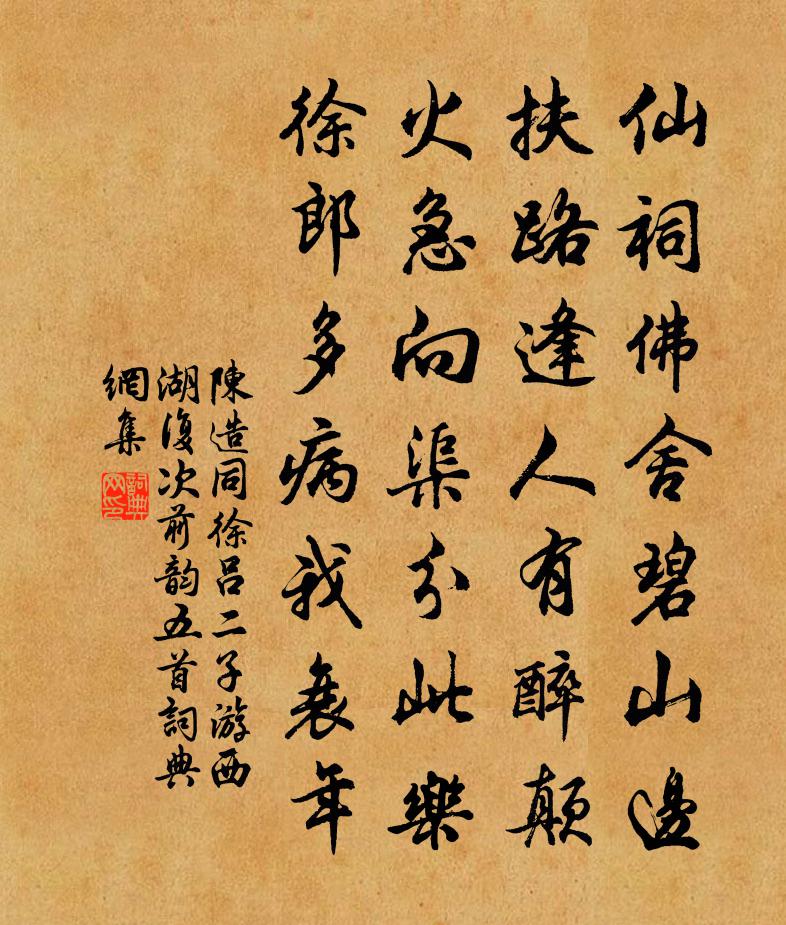 仙祠佛舍碧山邊
扶路逢人有醉顛
火急向渠分此樂
徐郎多病我衰年
陳造同徐呂二子游西
湖復次前韵五首詞典
網集
詞典
网印